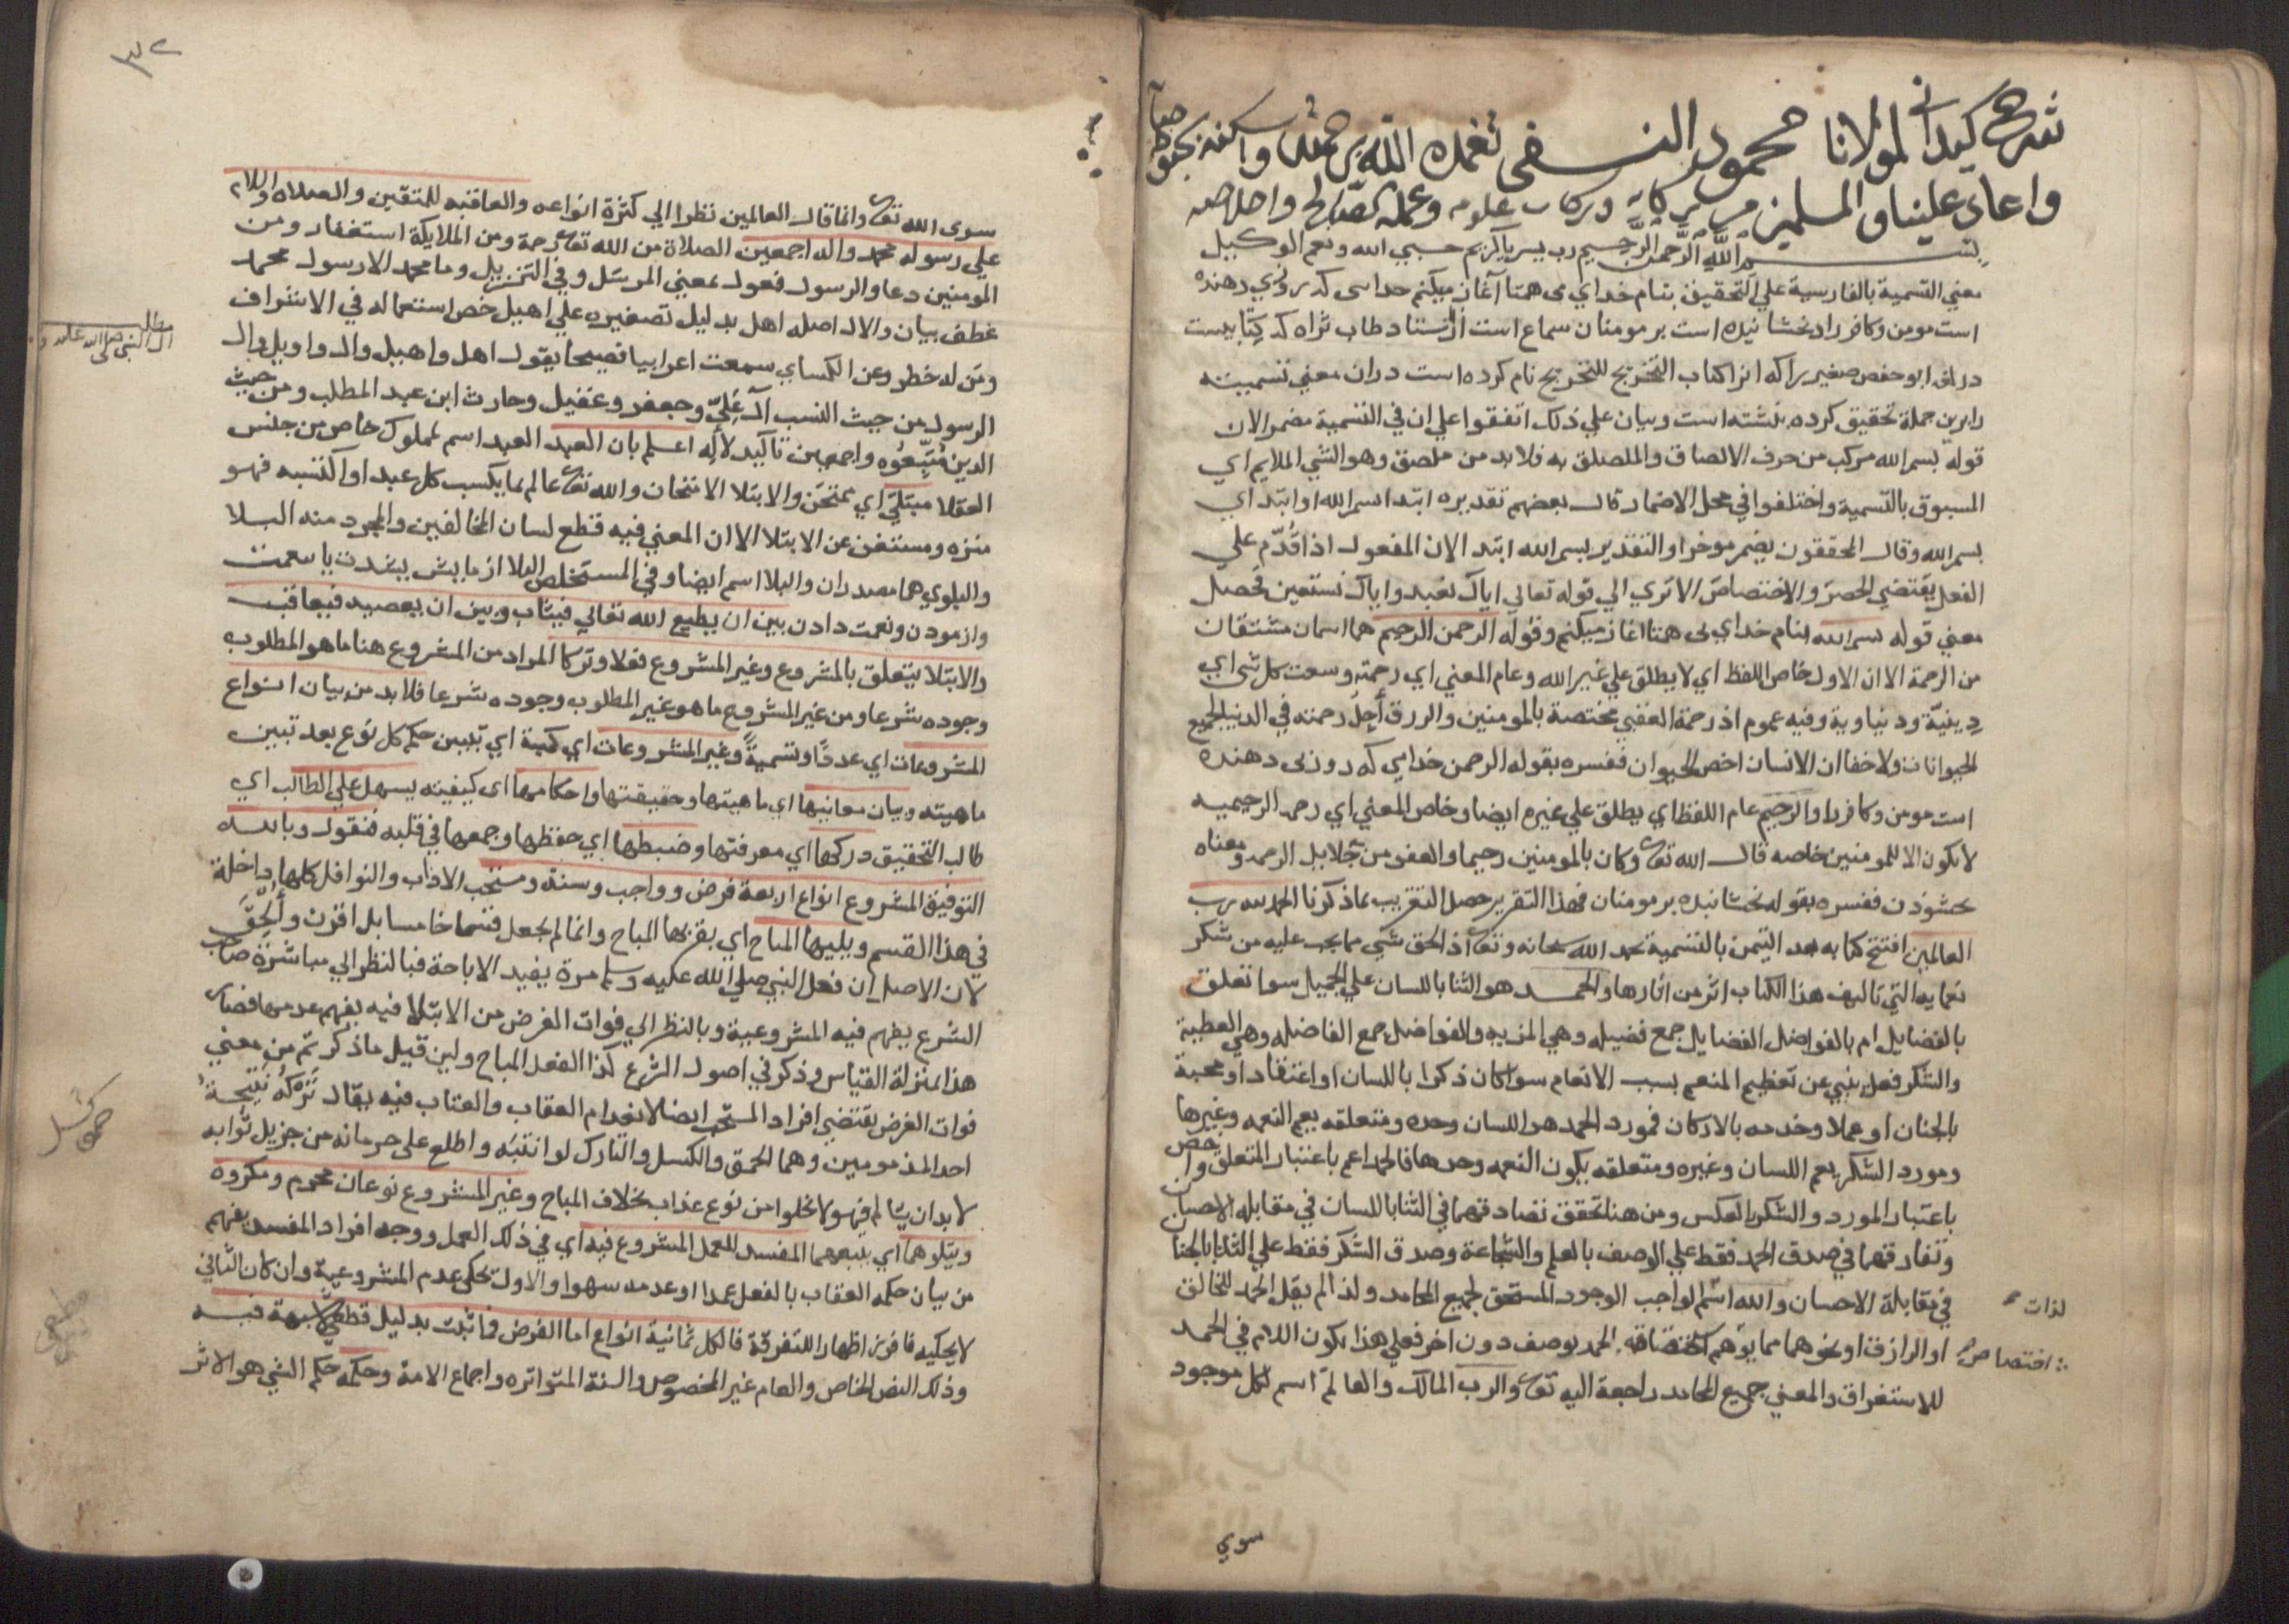 شرح كيداني لمولانا محمود النسفي تغمده الله برحمته واسكنه بحبوحة
واعاد علينا والمسلمين من بركاته وبركات علومه وعمله الصالح واخلاصه
بسم الله الرحمن الرحيم رب يسر يا كريم حسبي الله ونعم الوكيل
معني التسمية بالفارسية علي التحقيق بنام خداي بى همتا آغاز ميكنم خداى كه روزي دهنده
است مومن وكافر را بخشانيده است بر مومنان سماع است از استاد
در لف ابو حفص صغير را كه انرا كتاب التخريج للتخريج نام كرده است دران معني تسميته
را برين جملة تحقيق كرده نشته است وبيان علي ذلك اتفقوا علي ان في التسمية مضمر الان
قوله بسم الله مركب من حرف الالصاق والملصق به فلا بد من ملصق وهو الشي الملايم اي
المسبوق بالتسمية واختلفوا في محل الاضمار قال بعضهم تقديره ابتدا بسم الله او ابتداي
بسم الله وقال المحققون يضمر موخرا والتقدير بسم الله ابتد الان المفعول اذا قُدّم علي
الفعل يقتضي الحصرَ والاختصاصَ الا تري الي قوله تعالي اياك نعبد واياك نستعين فحصل
معني قوله بسم الله بنام خداي بى همتا اغاز ميكنم وقوله الرحمن الرحيم هما اسمان مشتقان
من الرحمة الا ان الاول خاص اللفظ اي لا يطلق علي غير الله وعام المعني اي رحمته وسعت كل شي اي
دِينيّة ودنياوية وفيه عموم اذ رحمة العقبي مختصة بالمومنين والرزق أجلُ رحمته في الدنيا لجميع
الحيوانات ولا خفا ان الانسان اخص الحيوان ففسره بقوله الرحمن خداي كه روزى دهنده
است مومن وكافر را والرحيم عام اللفظ اي يطلق علي غيره ايضا وخاص المعني اي رحمة الرحيمية
لا يكون الا للمومنين خاصة قال الله تع وكان بالمومنين رحيما والعفو من جلايل الرحمة ومعناه
بخشودن ففسره بقوله بخشانيده بر مومنان فهذا التقرير حصل التقريب بما ذكرنا الحمد لله رب
العالمين افتتح كتابه بعد التيمن بالتسمية بحمد الله سبحانه وتع اذ الحق شكى مما يجب عليه من شكر
نعمايه التي تاليف هذا الكتاب اثر من اثارها والحمد هو الثنا باللسان علي الجميل سوا تعلق
بالفضايل ام بالفواضل الفضايل جمع فضيله وهي المزيه والفواضل جمع الفاضله وهي العطية
والشكر فعل ينبي عن تعظيم المنعم بسبب الانعام سوا كان ذكرا باللسان او اعتقادا او محبة
بالجنان او عملا وخدمه بالاركان فمورد الحمد هو اللسان وحده ومتعلقه يعم النعمه وغيرها
ومورد الشكر يعم اللسان وغيره ومتعلقه يكون النعمه وحدها فالحمد اعم باعتبار المتعلق واخص
باعتبار المورد والشكر بالعكس ومن هنا تحقق تصادقهما في الثنا باللسان في مقابلة الاحسان
وتفارقهما في صدق الحمد فقط علي الوصف بالعلم والشجاعة وصدق الشكر فقط علي الثنا بالجنان
في مقابلة الاحسان والله اسم لواجب الوجود المستحق لجميع المحامد ولذا لم يقل الحمد للخالق
لذات
او الرازق او نحوهما مما يوهم اختصاصه الحمد بوصف دون اخر فعلي هذا يكون اللام في الحمد
اختصاص
للاستغراق والمعني جميع المحامد راجعة اليه تع والرب المالك والعالم اسم لكل موجود
سوي
سوى الله تع وانما قال العالمين نظرا الي كثرة انواعه والعاقبه للمتقين والصلاه والسلام
علي رسوله محمد واله اجمعين الصلاة من الله تع رحمة ومن الملايكة استغفار ومن
المومنين دعا والرسول فعول بمعني المرسَل وفي التنزيل وما محمد الا رسول محمد
عطف بيان والال اصله اهل بدليل تصغيره علي اهيل خص استعماله في الاشراف
مطلب
ال النبي صلى الله عليه و
ومن له خطر وعن الكساي سمعت اعرابيا فصيحا يقول اهل واهيل وال واويل وال
الرسول من حيث النسب آل عَلِيّ وجعفر وعقيل وحارث ابن عبد المطلب ومن حيث
الدين مُتّبِعُوه واجمعين تاكيد لآله اعلم بان العبد العبد اسم لمملوك خاص من جنس
العقلا مبتلَي اي ممتحَن والابتلا الامتحان والله تع عالم بما يكسب كل عبد او اكتسبه فهو
منزه ومستغن عن الابتلا الا ان المعني فيه قطع لسان المخالفين والمجرد منه البلا
والبلوي هما مصدران والبلا اسم ايضا وفي المستخلص البلا ازمايش يا نعمت
وازمودن ونعمت دادن بين ان يطيع الله تعالي فيثاب وبين ان يعصيه فيعاقب
والابتلا يتعلق بالمشروع وغير المشروع فعلا وتركا المراد من المشروع هنا ما هو المطلوب
وجوده شرعا ومن غير المشروع ما هو غير المطلوب وجوده شرعا فلا بد من بيان انواع
المشروعات اي عددًا وتسميةً وغير المشروعات اي كمية اي تبيين حكم كل نوع بعد تبيين
ماهيته وبيان معانيها اي ماهيتها وحقيقتها واحكامها اى كيفيته يسهل علي الطالب اي
طالب التحقيق دركها اي معرفتها وضبطها اي حفظها وجمعها في قلبه فنقول وبالله
التوفيق المشروع انواع اربعة فرض وواجب وسنة ومستحب الاداب والنوافل كلها داخلة
في هذا القسم ويليها المباح اي بقربها المباح وانما لم يجعل قسما خامسا بل افرز وأُلحِقَ
لان الاصل ان فعل النبي صلي الله عليه وسلم مرة يفيد الاباحة فبالنظر الي مباشرة صاحب
الشرع يفهم فيه المشروعية وبالنظر الي فوات الغرض من الابتلا فيه يفهم عدمها فصار
هذا بمنزلة القياس وذكر في اصول الشرع كذا الفعل المباح ولين قيل ما ذكر تم من معني
فوات الغرض يقتضي افراد المستحب ايضا لانعدام العقاب والعتاب فيه يقال تَرْكُهُ نَتِيجَةُ
احد المذمومين وهما الحمق والكسل والتارك لو انتبَه واطلع علي حرمانه من جزيل ثوابه
حمق كسل
لا بد ان يتالم فهو لا يخلوا من نوع عذاب بخلاف المباح وغير المشروع نوعان محرم ومكروه
ويتلوهما اي يتبعهما المفسد للعمل المشروع فيه اي في ذلك العمل ووجه افراد المفسد يفهم
من بيان حكمه العقاب بالفعل عمدا او عدمه سهوا والاول يحكى عدم المشروعية وان كان الثاني
لا يحكيه فافرز اظهارا للتفرقة فالكل ثمانية انواع اما الفرض فما ثبت بدليل قطعي لا شبهة فيه
وذلك النص الخاص والعام غير المخصوص والسنة المتواتره واجماع الامة وحكمه حكم الشي هو الاثر